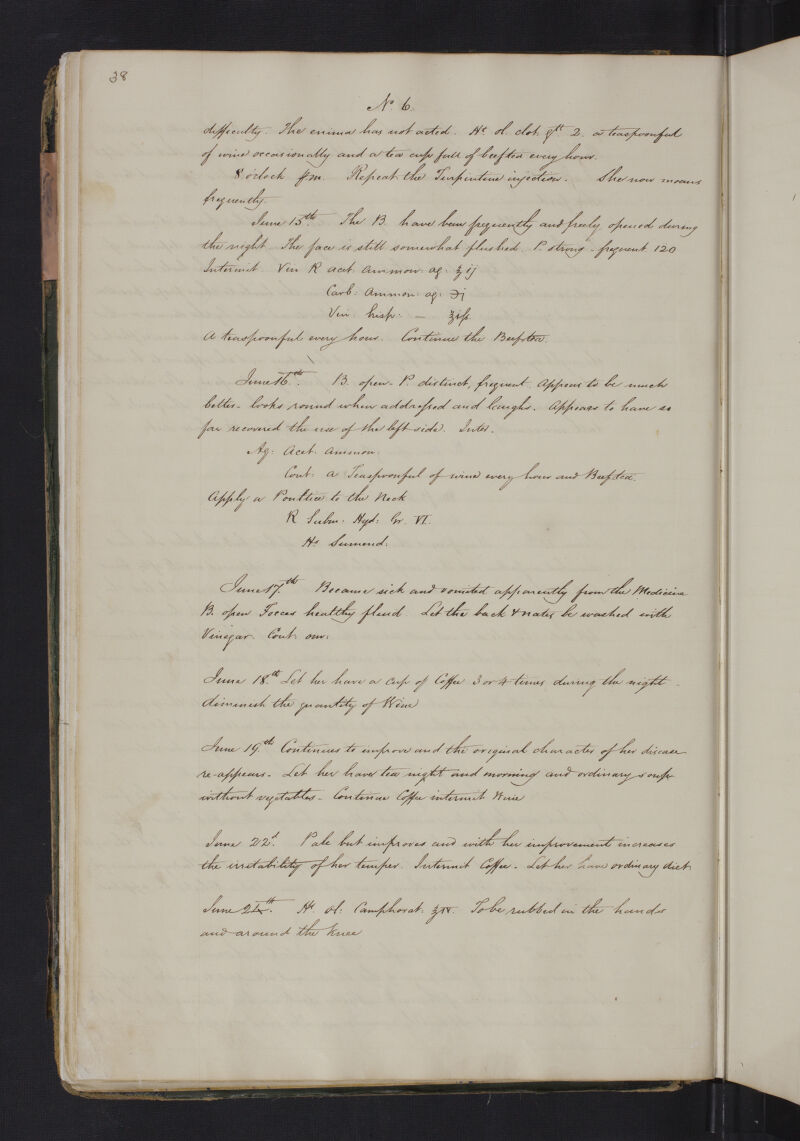 38
No 6.
difficulty. The enima has not acted. Hc ol. gtt 2. a teaspoonful
of wine occasionally and a tea cup full of beeftea every hour.
8 oclock pm. Repeat the Turpentine injection. She now moans
frequently.
June 15th. The B. have been frequently and freely opened during
the night. The face is still somewhat flushed. P. strong - frequent 120
Intermit Vin R acet ammon: aq: ℥ ij
Carb: Ammon: aq: ℈j
Vin hisp: — ℥iſs.
A teaspoonful every hour. Continue the Beeftea.
June 16th. B. open - P. distinct, frequent. Appears to be much
better - looks round when addressed and laughs. Appears to have so
far recovered the use of the left side. Inter.
Aq: Acet. ammon.
Cont: a Teaspoonful of wine every hour and Beeftea.
Apply a Poultice to the Neck
R Subm: Hyd: Gr. VI.
Hs Sumend:
June 17th Became sick and vomited apparently from the Medicine
B. open Foeces healthy fluid. Let the back & nates be washed with
Vinegar. Cont: omn:
June 18th Let her have a cup of Coffee 3 or 4 times during the night -
diminish the quantity of Wine
June 19th Continues to improve and the original character of her disease
re-appears - Let her have tea night and morning and ordinary soup
without vegetables - Continue Coffee intermit Wine
June 22d. Pale but improves and with her improvement increases
the irritability of her temper. Intermit Coffee - Let her have ordinary diet
June 24th. Hc Ol: Camphorat: ℥iv. To be rubbed in the hands
and around the knee